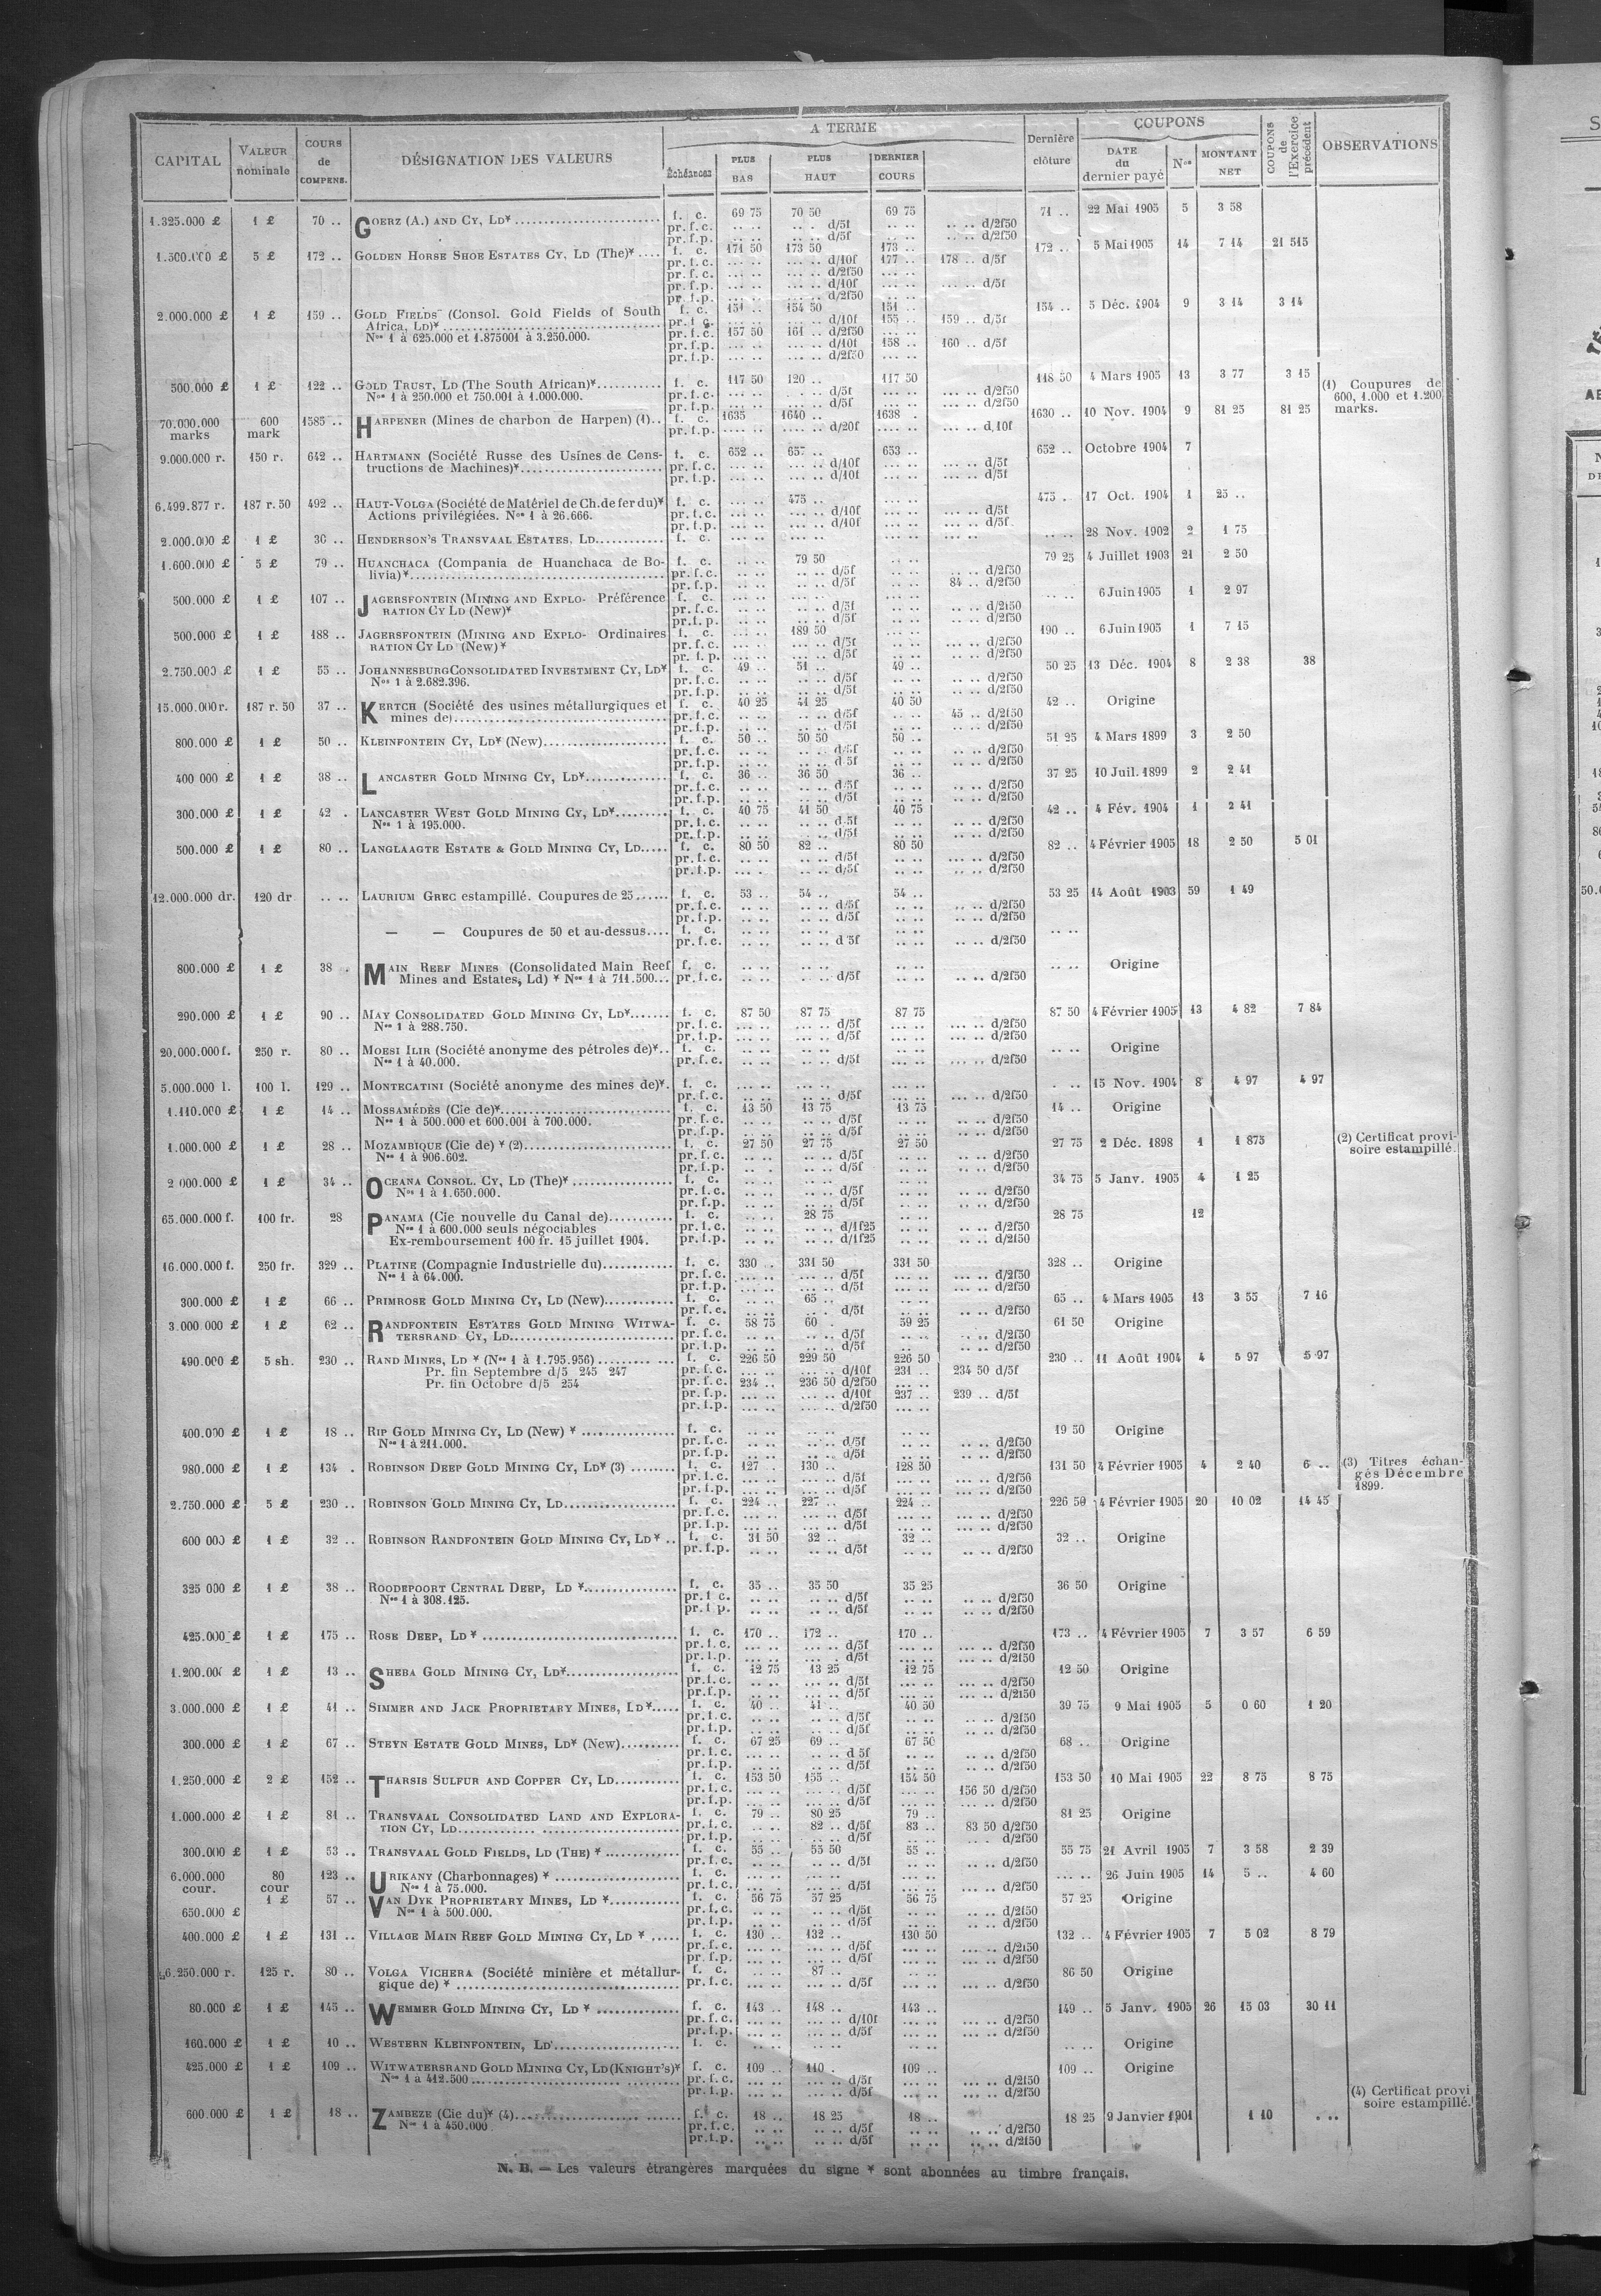 A TERME
COUPONS
CAPITAL VALEUR nominale COURS de COMPENS. DÉSIGNATION DES VALEURS Échéances PLUS BAS PLUS HAUT DERNIER COURS Dernière clôture DATE du dernier payé Nos MONTANT NET COUPONS de l'Exercice précédent OBSERVATIONS
1.325.000 £ 1 £ 70 .. GOERZ (A.) AND CY, LD* f. c. 69 75 70 50 69 75 71 .. 22 Mai 1905 5 3 58
pr. f. c. .. .. .. . d/5f .. .. .. .. d/2f50
pr. f. p. .. .. .. .. d/5f .. .. .. .. d/2f50
1.500.000 £ 5 £ 172 .. GOLDEN HORSE SHOE ESTATES CY, LD (The)* .... f. c. 171 50 173 50 173 .. 172 .. 5 Mai 1905 14 7 14 21 515
pr. f. c. ... .. ... .. d/10f 177 .. 178 .. d/5f
pr. f. c. ... .. ... .. d/2f50
pr. f. p. ... .. ... .. d/10f ... .. ... .. d/5f
pr. f. p. ... .. ... .. d/2f50 ... ..
2.000.000 £ 1 £ 159 .. GOLD FIELDS (Consol. Gold Fields of South f. c. 151 .. 154 50 151 .. 154 .. 5 Déc. 1904 9 3 14 3 14
Africa, LD)* pr. f. c. ... .. ... .. d/10f 155 .. 159 .. d/5f
Nos 1 à 625.000 et 1.875001 à 3.250.000. pr. f. c. 157 50 161 .. d/2f50 ... ..
pr. f. p. ... .. ... .. d/10f 158 .. 160 .. d/5f
pr. f. p. ... .. ... .. d/2f50 ... ..
500.000 £ 1 £ 122 .. GOLD TRUST, LD (The South African)* f. c. 117 50 120 .. 117 50 118 50 4 Mars 1905 13 3 77 3 15 (1) Coupures de
Nos 1 à 250.000 et 750.001 à 1.000.000. pr. f. c. ... .. . .. d/5f ... .. ... .. d/2f50 600, 1.000 et 1.200
pr. f. p. ... .. ... .. d/5f ... .. ... .. d/2f50 marks.
70.000.000 marks 600 mark 1585 .. HARPENER (Mines de charbon de Harpen) (1).. f. c. 1635 1640 .. 1638 . 1630 .. 10 Nov. 1904 9 81 25 81 25
pr. f. p. .... .. .... .. d/20f .... .. ... .. d, 10f
9.000.000 r. 150 r. 642 .. HARTMANN (Société Russe des Usines de Cons- f. c. 652 .. 657 .. 653 .. 652 .. Octobre 1904 7
tructions de Machines)* pr. f. c. ... .. ... .. d/10f ... .. ... .. d/5f
pr. f. p. ... .. ... .. d/10f ... .. ... .. d/5f
6.499.877 r. 187 r. 50 492 .. HAUT-VOLGA (Société de Matériel de Ch. de fer du)* f. c. ... .. 475 .. ... .. 475 . 17 Oct. 1904 1 25 ..
Actions privilégiées. Nos 1 à 26.666. pr. f. c. ... .. ... .. d/10f ... .. ... .. d/5f
pr. f. p. ... .. ... .. d/10f ... .. ... .. d/5f
2.000.000 £ 1 £ 36 .. HENDERSON'S TRANSVAAL ESTATES, LD f. c. ... .. ... .. ... .. ... .. .. .. 28 Nov. 1902 2 1 75
1.600.000 £ 5 £ 79 .. HUANCHACA (Compania de Huanchaca de Bo- f. c. .. .. 79 50 .. .. 79 25 4 Juillet 1903 21 2 50
livia)* pr. f. c. .. .. .. .. d/5f .. .. .. .. d/2f50
pr. f. p. .. .. .. .. d/5f .. .. 84 .. d/2f50
500.000 £ 1 £ 107 .. JAGERSFONTEIN (MINING AND EXPLO- Préférence f. c. ... .. .. .. 6 Juin 1905 1 2 97
RATION CY LD (New)* pr. f. c. .. .. .. .. d/5f .. .. .. .. d/2f50
pr. f. p. .. .. .. .. d/5f .. .. .. .. d/2f50
500.000 £ 1 £ 188 .. JAGERSFONTEIN (MINING AND EXPLO- Ordinaires f. c. ... .. 189 50 190 .. 6 Juin 1905 1 7 15
RATION CY LD (New)* pr. f. c. ... .. ... .. d/5f ... .. ... .. d/2f50
pr. f. p. ... .. ... .. d/5f ... .. ... .. d/2f50
2.750.000 £ 1 £ 55 .. JOHANNESBURG CONSOLIDATED INVESTMENT CY, LD* f. c. 49 .. 51 .. 49 .. 50 25 13 Déc. 1904 8 2 38 38
Nos 1 à 2.682.396. pr. f. c. .. .. .. .. d/5f .. .. .. .. d/2f50
pr. f. p. .. .. .. .. d/5f .. .. .. .. d/2f50
15.000.000 r. 187 r. 50 37 .. KERTCH (Société des usines métallurgiques et f. c. 40 25 41 25 40 50 42 .. Origine
mines de) pr. f. c. .. .. .. .. d/5f .. .. 45 .. d/2f50
pr. f. p. .. .. .. .. d/5f .. .. .. .. d/2f50
800.000 £ 1 £ 50 .. KLEINFONTEIN CY, LD* (New) f. c. 50 .. 50 50 50 .. 51 25 4 Mars 1899 3 2 50
pr. f. c. .. .. .. .. d/5f .. .. .. .. d/2f50
pr. f. p. .. .. .. .. d 5f .. .. .. .. d/2f50
400 000 £ 1 £ 38 .. LANCASTER GOLD MINING CY, LD* f. c. 36 .. 36 50 36 .. 37 25 10 Juil. 1899 2 2 41
pr. f. c. .. .. .. .. d/5f .. .. .. .. d/2f50
pr. f. p. .. .. .. .. d/5f .. .. .. .. d/2f50
300.000 £ 1 £ 42 . LANCASTER WEST GOLD MINING CY, LD* f. c. 40 75 41 50 40 75 42 .. 4 Fév. 1904 1 2 41
Nos 1 à 195.000. pr. f. c. .. .. .. .. d 5f .. .. .. .. d/2f50
pr. f. p. .. .. .. .. d/5f .. .. .. .. d/2f50
500.000 £ 1 £ 80 .. LANGLAAGTE ESTATE & GOLD MINING CY, LD f. c. 80 50 82 .. 80 50 82 .. 4 Février 1905 18 2 50 5 01
pr. f. c. .. .. .. .. d/5f .. .. ... .. d/2f50
pr. f. p. ... . .. .. d/5f .. .. ... .. d/2f50
12.000.000 dr. 120 dr .. .. LAURIUM GREC estampillé. Coupures de 25 f. c. 53 .. 54 .. 54 .. 53 25 14 Août 1903 59 1 49
pr. f. c. .. .. .. .. d/5f .. .. .. .. d/2f50
pr. f. p. .. .. .. .. d/5f .. .. .. .. d/2f50
— — Coupures de 50 et au-dessus.... f. c. .. .. .. .. .. .. .. ..
pr. f. c. .. .. .. .. d 5f .. .. .. .. d/2f50
800.000 £ 1 £ 38 . MAIN REEF MINES (Consolidated Main Reef f. c. .. .. .. .. .. .. .. .. Origine
Mines and Estates, Ld) * Nos 1 à 711.500... pr. f. c. .. .. .. .. d/5f .. .. .. .. d/2f50
290.000 £ 1 £ 90 .. MAY CONSOLIDATED GOLD MINING CY, LD* f. c. 87 50 87 75 87 75 87 50 4 Février 1905 13 4 82 7 84
Nos 1 à 288.750. pr. f. c. .. .. ... .. d/5f .. .. ... .. d/2f50
pr. f. p. .. .. ... .. d/5f .. .. ... .. d/2f50
20.000.000 f. 250 r. 80 .. MOESI ILIR (Société anonyme des pétroles de)*.. f. c. .. .. .. .. .. .. .. .. Origine
Nos 1 à 40.000. pr. f. c. .. .. .. .. d/5f .. .. ... .. d/2f50
5.000.000 l. 100 l. 129 .. MONTECATINI (Société anonyme des mines de)*. f. c. ... .. ... .. ... .. . .. 15 Nov. 1904 8 4 97 4 97
pr. f. c. ... .. ... .. d/5f ... .. ... .. d/2f50
1.110.000 £ 1 £ 14 .. MOSSAMÉDÈS (Cie de)* f. c. 13 50 13 75 13 75 14 .. Origine
Nos 1 à 500.000 et 600.001 à 700.000. pr. f. c. .. .. .. .. d/5f .. .. .. .. d/2f50
pr. f. p. .. .. .. .. d/5f .. .. .. .. d/2f50
1.000.000 £ 1 £ 28 .. MOZAMBIQUE (Cie de) * (2) f. c. 27 50 27 75 27 50 27 75 2 Déc. 1898 1 1 875 (2) Certificat provi-
Nos 1 à 906.602. pr. f. c. .. .. .. .. d/5f .. .. .. .. d/2f50 soire estampillé.
pr. f. p. .. .. .. .. d/5f .. .. .. .. d/2f50
2 000.000 £ 1 £ 34 .. OCEANA CONSOL. CY, LD (The)* f. c. .. .. .. .. .. .. 34 75 5 Janv. 1905 4 1 25
Nos 1 à 1.650.000. pr. f. c. .. .. .. .. d/5f .. .. .. .. d/2f50
pr. f. p. .. .. .. .. d/5f .. .. .. .. d/2f50
65.000.000 f. 100 fr. 28 PANAMA (Cie nouvelle du Canal de) f. c. .. .. 28 75 .. .. 28 75 12
Nos 1 à 600.000 seuls négociables pr. f. c. .. .. .. .. d/1f25 .. .. .. .. d/2f50
Ex-remboursement 100 fr. 15 juillet 1904. pr. f. p. .. .. .. .. d/1f25 .. .. .. .. d/2f50
16.000.000 f. 250 fr. 329 .. PLATINE (Compagnie Industrielle du) f. c. 330 .. 331 50 331 50 328 .. Origine
Nos 1 à 64.000. pr. f. c. ... .. ... .. d/5f ... .. ... .. d/2f50
pr. f. p. ... .. ... .. d/5f ... .. ... .. d/2f50
300.000 £ 1 £ 66 .. PRIMROSE GOLD MINING CY, LD (New) f. c. .. .. 65 .. .. .. 65 .. 4 Mars 1905 13 3 55 7 16
pr. f. c. .. .. .. . d/5f .. .. .. .. d/2f50
3.000.000 £ 1 £ 62 .. RANDFONTEIN ESTATES GOLD MINING WITWA- f. c. 58 75 60 . 59 25 61 50 Origine
TERSRAND CY, LD pr. f. c. .. .. .. .. d/5f .. .. .. .. d/2f50
pr. f. p. .. .. .. .. d/5f .. .. .. .. d/2f50
490.000 £ 5 sh. 230 .. RAND MINES, LD * (Nos 1 à 1.795.956) f. c. 226 50 229 50 226 50 230 .. 11 Août 1904 4 5 97 5 97
Pr. fin Septembre d/5 245 247 pr. f. c. ... .. ... .. d/10f 231 .. 234 50 d/5f
Pr. fin Octobre d/5 254 pr. f. c. 234 .. 236 50 d/2f50 ... ..
pr. f. p. ... .. ... .. d/10f 237 .. 239 .. d/5f
pr. f. p. ... .. ... .. d/2f50 ... ..
400.000 £ 1 £ 18 .. RIP GOLD MINING CY, LD (New) * f. c. .. .. .. .. .. .. 19 50 Origine
Nos 1 à 211.000. pr. f. c. .. .. .. .. d/5f .. .. .. .. d/2f50
pr. f. p. .. .. .. .. d/5f .. .. .. .. d/2f50
980.000 £ 1 £ 134 . ROBINSON DEEP GOLD MINING CY, LD* (3) f. c. 127 .. 130 .. 128 50 131 50 4 Février 1905 4 2 40 6 .. (3) Titres échan-
pr. f. c. ... .. ... .. d/5f ... .. ... .. d/2f50 gés Décembre
pr. f. p. ... .. ... .. d/5f ... .. ... .. d/2f50 1899.
2.750.000 £ 5 £ 230 .. ROBINSON GOLD MINING CY, LD f. c. 224 .. 227 .. 224 .. 226 50 4 Février 1905 20 10 02 14 45
pr. f. c. ... .. ... .. d/5f ... .. ... .. d/2f50
pr. f. p. ... .. ... .. d/5f ... .. ... .. d/2f50
600 000 £ 1 £ 32 .. ROBINSON RANDFONTEIN GOLD MINING CY, LD * .. f. c. 31 50 32 .. 32 .. 32 .. Origine
pr. f. p. .. .. .. .. d/5f .. .. .. .. d/2f50
325 000 £ 1 £ 38 .. ROODEPOORT CENTRAL DEEP, LD * f. c. 35 .. 35 50 35 25 36 50 Origine
Nos 1 à 308.125. pr. f c. .. .. .. .. d/5f .. .. .. .. d/2f50
pr. f p. .. .. .. .. d/5f .. .. .. .. d/2f50
425.000 £ 1 £ 175 .. ROSE DEEP, LD * f. c. 170 .. 172 .. 170 .. 173 .. 4 Février 1905 7 3 57 6 59
pr. f. c. ... .. ... .. d/5f ... .. ... .. d/2f50
pr. f. p. ... .. ... .. d/5f ... .. ... .. d/2f50
1.200.000 £ 1 £ 13 .. SHEBA GOLD MINING CY, LD* f. c. 12 75 13 25 12 75 12 50 Origine
pr. f. c. ... .. ... .. d/5f ... .. ... .. d/2f50
pr. f. p. .. .. .. .. d/5f ... .. ... .. d/2f50
3.000.000 £ 1 £ 41 .. SIMMER AND JACK PROPRIETARY MINES, LD* f. c. 40 .. 41 .. 40 50 39 75 9 Mai 1905 5 0 60 1 20
pr. f. c. .. .. .. .. d/5f .. .. .. .. d/2f50
pr. f. p. .. .. .. .. d/5f .. .. .. .. d/2f50
300.000 £ 1 £ 67 .. STEYN ESTATE GOLD MINES, LD* (New) f. c. 67 25 69 .. 67 50 68 .. Origine
pr. f. c. .. .. .. .. d 5f .. .. .. .. d/2f50
pr. f. p. .. .. .. .. d/5f .. .. .. .. d/2f50
1.250.000 £ 2 £ 152 .. THARSIS SULFUR AND COPPER CY, LD f. c. 153 50 155 .. 154 50 153 50 10 Mai 1905 22 8 75 8 75
pr. f. c. ... .. ... .. d/5f ... .. 156 50 d/2f50
pr. f. p. ... .. ... .. d/5f ... .. ... .. d/2f50
1.000.000 £ 1 £ 81 .. TRANSVAAL CONSOLIDATED LAND AND EXPLORA- f. c. 79 .. 80 25 79 .. 81 25 Origine
TION CY, LD pr. f. c. .. .. 82 .. d/5f 83 .. 83 50 d/2f50
pr. f. p. .. .. .. .. d/5f .. .. .. . d/2f50
300.000 £ 1 £ 53 .. TRANSVAAL GOLD FIELDS, LD (THE) * f. c. 55 .. 55 50 55 .. 55 75 21 Avril 1905 7 3 58 2 39
pr. f. c. .. .. .. .. d/5f .. .. .. .. d/2f50
6.000.000 cour. 80 cour 123 .. URIKANY (Charbonnages) * f. c. ... .. ... .. ... .. ... .. 26 Juin 1905 14 5 .. 4 60
Nos 1 à 75.000. pr. f. c. ... .. ... .. d/5f ... .. ... .. d/2f50
650.000 £ 1 £ 57 .. VAN DYK PROPRIETARY MINES, LD * f. c. 56 75 57 25 56 75 57 25 Origine
Nos 1 à 500.000. pr. f. c. .. .. .. .. d/5f .. .. .. .. d/2f50
pr. f. p. .. .. .. .. d/5f .. .. .. .. d/2f50
400.000 £ 1 £ 131 .. VILLAGE MAIN REEF GOLD MINING CY, LD * f. c. 130 .. 132 .. 130 50 132 .. 4 Février 1905 7 5 02 8 79
pr. f. c. ... .. ... .. d/5f ... .. ... .. d/2f50
pr. f. p. ... .. ... .. d/5f ... .. ... .. d/2f50
6.250.000 r. 125 r. 80 .. VOLGA VICHERA (Société minière et métallur- f. c. .. .. 87 .. .. .. 86 50 Origine
gique de) * pr. f. c. ... .. ... .. d/5f ... .. ... .. d/2f50
80.000 £ 1 £ 145 .. WEMMER GOLD MINING CY, LD * f. c. 143 .. 148 .. 143 .. 149 .. 5 Janv. 1905 26 15 03 30 11
pr. f. c. ... .. ... .. d/10f ... .. ... .. d/2f50
pr. f. p. ... .. ... .. d/5f ... .. ... .. d/2f50
160.000 £ 1 £ 10 .. WESTERN KLEINFONTEIN, LD f. c. .. .. .. .. .. .. .. .. Origine
425.000 £ 1 £ 109 .. WITWATERSRAND GOLD MINING CY, LD (KNIGHT'S)* f. c. 109 .. 110 . 109 .. 109 .. Origine
Nos 1 à 412.500 pr. f. c. ... .. ... .. d/5f ... .. ... .. d/2f50
pr. f. p. ... .. ... .. d/5f ... .. ... .. d/2f50 (4) Certificat provi
600.000 £ 1 £ 18 .. ZAMBEZE (Cie du)* (4) f. c. 18 .. 18 25 18 .. 18 25 9 Janvier 1901 1 10 . .. soire estampillé.
Nos 1 à 450.000 pr. f. c. .. .. .. .. d/5f .. .. .. .. d/2f50
pr. f. p. .. .. .. .. d/5f .. .. .. .. d/2f50
N. B. — Les valeurs étrangères marquées du signe * sont abonnées au timbre français.